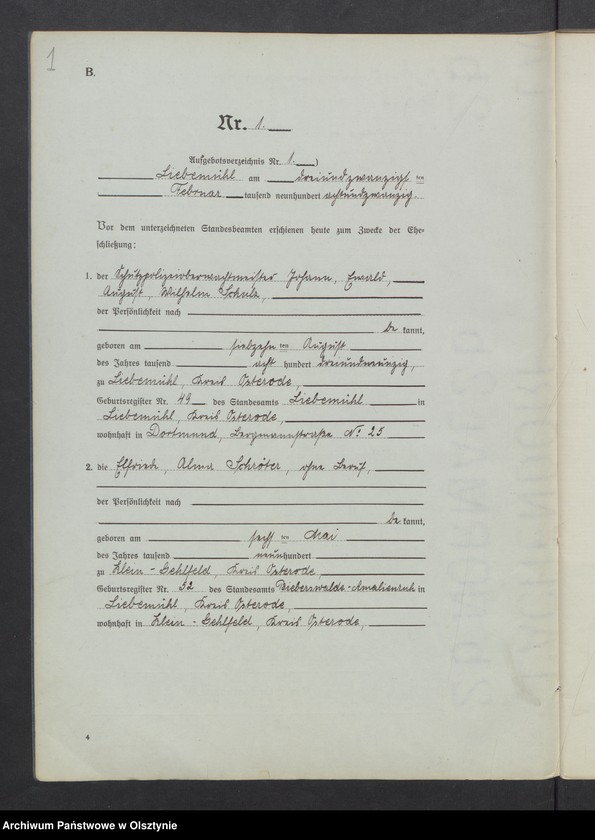 1
B.
Nr. 1.
Aufgebotsverzeichnis Nr. 1.)
Liebemühl am dreiundzwanzigs ten
Februar tausend neunhundert achtundzwanzig.
Vor dem unterzeichneten Standesbeamten erschienen heute zum Zwecke der Ehe-
schließung:
1. der Schutzpolizeioberwachtmeister Johann, Ewald,
August, Wilhelm Schulz,
der Persönlichkeit nach
be kannt,
geboren am siebzehn ten August
des Jahres tausend acht hundert dreiundneunzig,
zu Liebemühl, Kreis Osterode,
Geburtsregister Nr. 49 des Standesamts Liebemühl in
Liebemühl, Kreis Osterode,
wohnhaft in Dortmund, Bergmannstraße No 25
2. die Elfriede, Alma Schröter, ohne Beruf,
der Persönlichkeit nach
be kannt,
geboren am sechs ten Mai
des Jahres tausend neunhundert
zu Klein-Gehlfeld, Kreis Osterode,
Geburtsregister Nr. 52 des Standesamts Bieberswalde-Amalienruh in
Liebemühl, Kreis Osterode,
wohnhaft in Klein-Gehlfeld, Kreis Osterode,
4
Archiwum Państwowe w Olsztynie